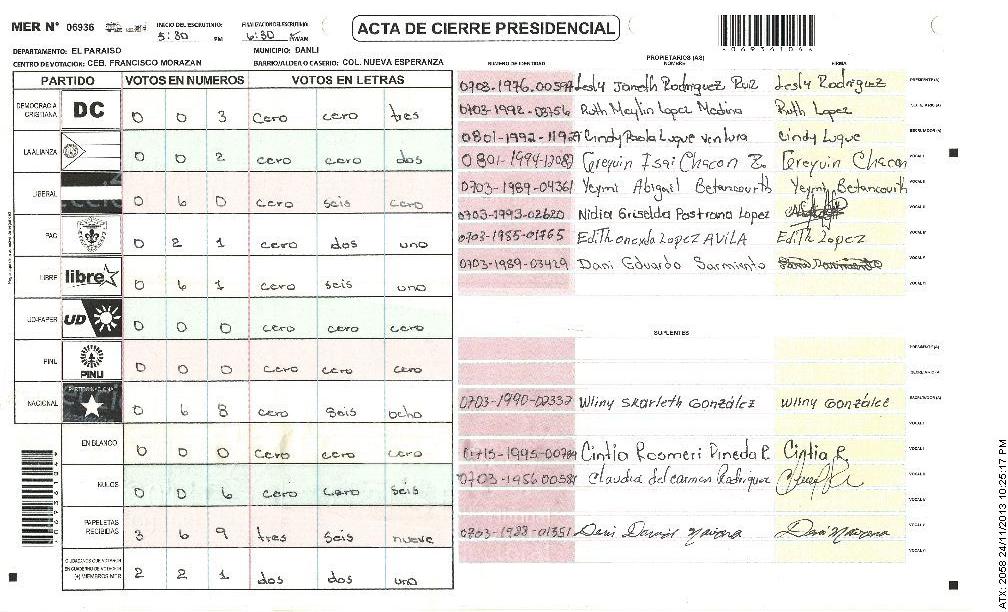 MER N° 06936
INICIO DEL ESCRUTINIO: 5:30 PM
FINALIZACION DEL ESCRUTINIO: 6:30
ACTA DE CIERRE PRESIDENCIAL
DEPARTAMENTO: EL PARAISO
MUNICIPIO: DANLI
CENTRO DE VOTACION: CEB. FRANCISCO MORAZAN
BARRIO/ALDEA O CASERIO: COL. NUEVA ESPERANZA
PARTIDO VOTOS EN NUMEROS VOTOS EN LETRAS
DEMOCRACIA CRISTIANA DC 0 0 3 cero cero tres
LA ALIANZA 0 0 2 cero cero dos
LIBERAL 0 6 0 cero seis cero
PAC 0 2 1 cero dos uno
LIBRE libre 0 6 1 cero seis uno
UD-FAPER UD 0 0 0 cero cero cero
PINU PINU 0 0 0 cero cero cero
NACIONAL 0 6 8 cero seis ocho
EN BLANCO 0 0 0 cero cero cero
NULOS 0 0 6 cero cero seis
PAPELETAS RECIBIDAS 3 6 9 tres seis nueve
CIUDADANOS QUE VOTARON EN CUADERNO DE VOTACION (+) MIEMBROS MER 2 2 1 dos dos uno
PROPIETARIOS (AS)
NUMERO DE IDENTIDAD NOMBRE FIRMA
Lesly Janeth Rodriguez Ruiz Lesly Rodriguez PRESIDENTE(A)
0703-1992-03756 Ruth Maylin Lopez Medina Ruth Lopez SECRETARIO(A)
Cindy Paola Luque Ventura Cindy Luque ESCRUTADOR(A)
Isai Chacon Chacon VOCAL I
0703-1989-04361 Yeymi Abigail Betancourth Yeymi Betancourth VOCAL II
0703-1993-02620 Nidia Griselda Pastrana Lopez
0703-1985-01765 Edith Lopez AVILA Edith Lopez
0703-1989-03429 Dani Eduardo Sarmiento
SUPLENTES
PRESIDENTE(A)
SECRETARIO(A)
0703-1990-02332 Wliny Skarleth González Wliny González ESCRUTADOR(A)
VOCAL I
Cintia Rosmeri Pineda R. Cintia R.
Claudia del carmen Rodriguez
0703-1988-01351
ATX: 2058 24/11/2013 10:25:17 PM